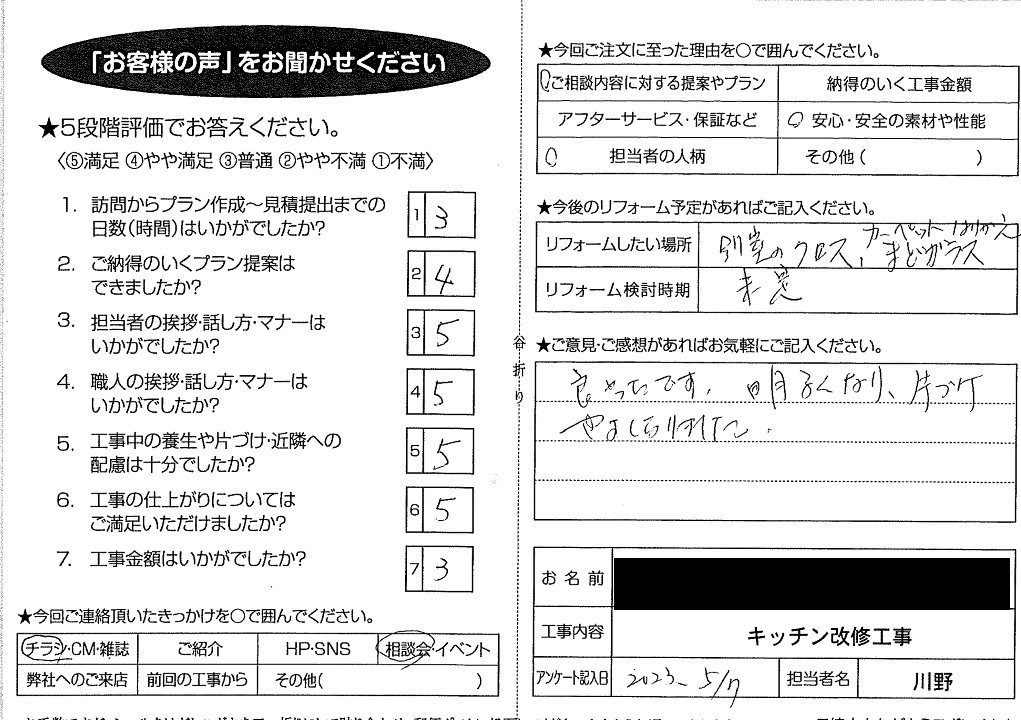 「お客様の声」をお聞かせください
★5段階評価でお答えください。
〈⑤満足 ④やや満足 ③普通 ②やや不満 ①不満〉
1. 訪問からプラン作成～見積提出までの
日数(時間)はいかがでしたか?
1 3
2. ご納得のいくプラン提案は
できましたか?
2 4
3. 担当者の挨拶・話し方・マナーは
いかがでしたか?
3 5
4. 職人の挨拶・話し方・マナーは
いかがでしたか?
4 5
5. 工事中の養生や片づけ・近隣への
配慮は十分でしたか?
5 5
6. 工事の仕上がりについては
ご満足いただけましたか?
6 5
7. 工事金額はいかがでしたか?
7 3
★今回ご連絡頂いたきっかけを○で囲んでください。
チラシ・CM・雑誌 ご紹介 HP・SNS 相談会・イベント
弊社へのご来店 前回の工事から その他( )
谷折り
★今回ご注文に至った理由を○で囲んでください。
ご相談内容に対する提案やプラン 納得のいく工事金額
アフターサービス・保証など ○ 安心・安全の素材や性能
○ 担当者の人柄 その他( )
★今後のリフォーム予定があればご記入ください。
リフォームしたい場所 別室のクロス、カーペットはりかえ
まどガラス
リフォーム検討時期 未定
★ご意見・ご感想があればお気軽にご記入ください。
良かったです。明るくなり、片づけ
お名前
工事内容 キッチン改修工事
アンケート記入日 2023- 5/17 担当者名 川野